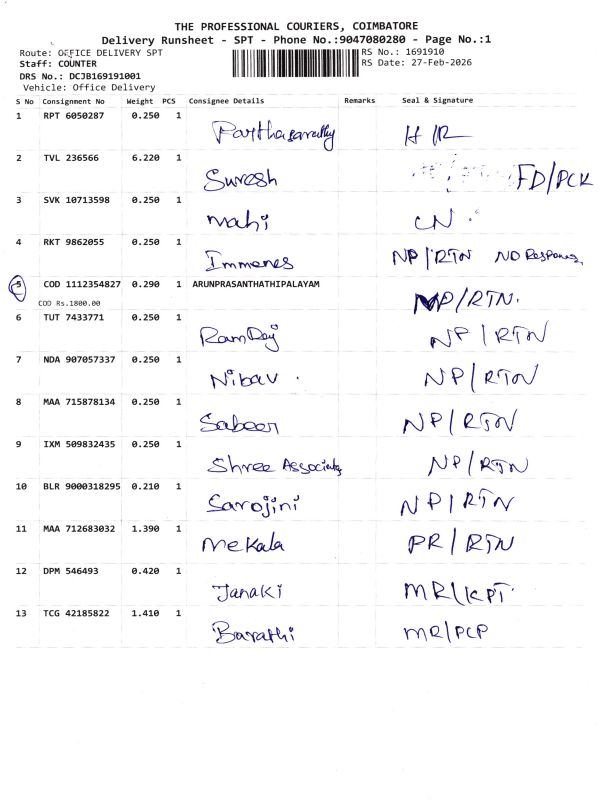 THE PROFESSIONAL COURIERS, COIMBATORE
Delivery Runsheet - SPT - Phone No.:9047080280 - Page No.:1
Route: OFFICE DELIVERY SPT
RS No.: 1691910
Staff: COUNTER
RS Date: 27-Feb-2026
DRS No.: DCJB169191001
Vehicle: Office Delivery
S No Consignment No Weight PCS Consignee Details Remarks Seal & Signature
1 RPT 6050287 0.250 1 Parthasarathy
2 TVL 236566 6.220 1 Suresh FD/PCK
3 SVK 10713598 0.250 1 Mahi CN
4 RKT 9862055 0.250 1 Immenes NP/RTN NO Response
5 COD 1112354827 0.290 1 ARUNPRASANTHATHIPALAYAM NP/RTN.
COD Rs.1800.00
6 TUT 7433771 0.250 1 NP/RTN
7 NDA 907057337 0.250 1 Nibav . NP/RTN
8 MAA 715878134 0.250 1 Sabeer NP/RTN
9 IXM 509832435 0.250 1 Shree Associates NP/RTN
10 BLR 9000318295 0.210 1 Sarojini NP/RTN
11 MAA 712683032 1.390 1 Mekala PR/RTN
12 DPM 546493 0.420 1 Janaki MR/KPT
13 TCG 42185822 1.410 1 Barathi MR/PCP